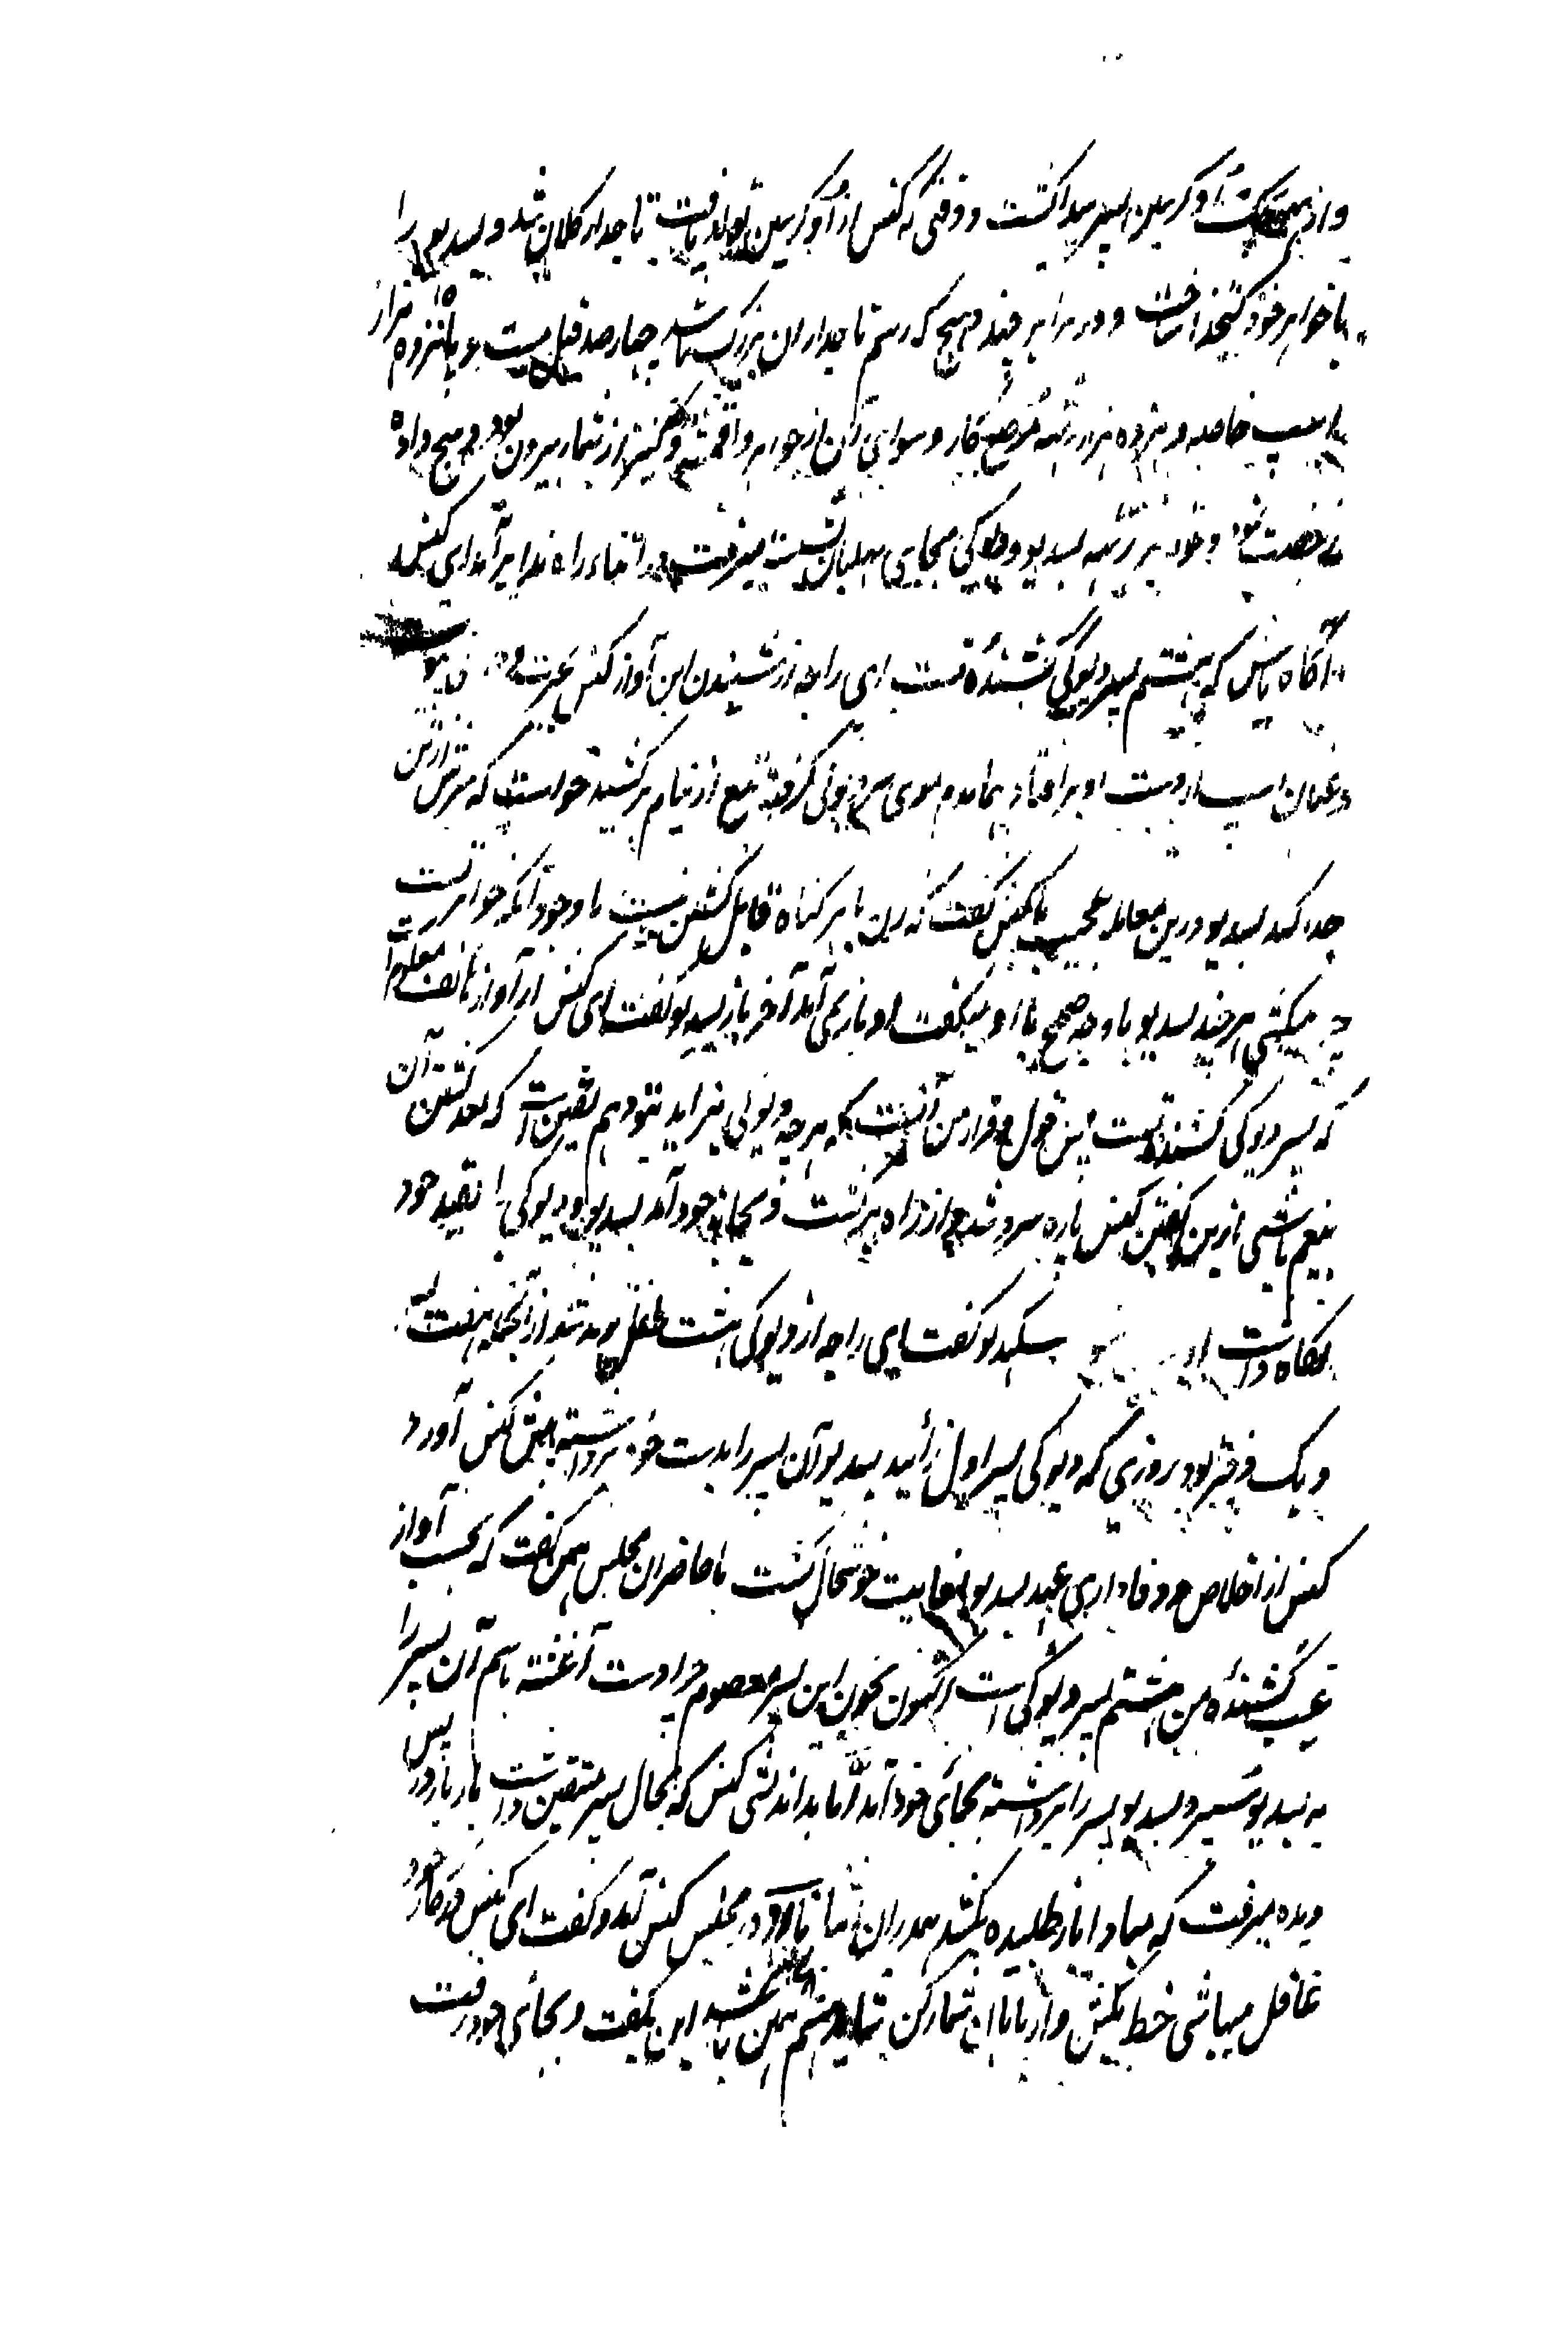 و از اوگرسین پسر پیدا گشت و وقتی که کنس از اوگرسین تولد یافت تاجدار کلان شد و بسدیو را
با خواهر خود کتخدا ساخت و در برابر چند دهیج که رسم تاجداران بزرگ باشد چهارصد فیل مست و پانزده هزار
اسپ خاصه و هژده هزار رتهه مرصع کار و سوای آن از جواهر و اقمشه و کنیز از شمار بیرون بود دهیج داده
رخصت نمود و خود بر رتهه بسدیو و دیوکی بجای بهلبان نشست میرفت در اثناء راه ندا برآمد ای کنس
آگاه باش که هشتم پسر دیوکی کشنده تست ای راجه از شنیدن این آواز کنس
و عنان اسپ از دست او بر افتاد هماندم موی سر دیوکی گرفته تیغ از نیام برکشید خواست که سرش از تن
جدا کند بسدیو درین معامله عجیب با کنس گفت که زن بهر گناه قابل کشتن نیست با وجود آنکه خواهر تست
چه میکشی هر چند بسدیو با وجه صحیح با او میگفت او باز نمی آمد آخر باز بسدیو گفت ای کنس از آواز هاتف معلوم
که پسر دیوکی کشنده تست این قول و قرار من آنست که هر چه دیوکی بزاید بتو دهم یقین است که بعد کشتن آن
بیغم باشی ازین گفتن کنس پاره سرد شد و از راه برگشت و بجای خود آمد بسدیو و دیوکی را بقید خود
نگاه داشت سکدیو گفت ای راجه از دیوکی هشت طفل بودند از آنجمله هفت پسر
و یک دختر بود روزی که دیوکی پسر اول زائید بسدیو آن پسر را بدست خود برداشته پیش کنس آورد
کنس از اخلاص و وفاداری عهد بسدیو بغایت خوشحال گشت با حاضران مجلس همین گفت که بحسب آواز
غیب کشنده من هشتم پسر دیوکی است اکنون بخون این پسر معصوم چرا دست آغشته باشم آن پسر را
به بسدیو سپرد بسدیو پسر را برداشته بجای خود آمد اما بداندیشی کنس که بحال پسر متیقن داشت بار بار در پس
دیده میرفت که مبادا باز طلبیده بکشد همدران اثنا نارد در مجلس کنس آمد و گفت ای کنس در کار خود
غافل میباشی خط بکش و از پایان شمار کن شاید هشتم همین باشد این بگفت و بجای خود رفت